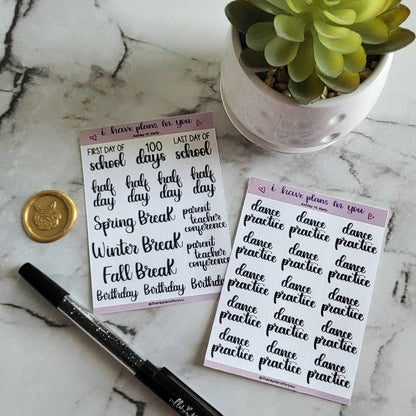 i have plans for you
FIRST DAY OF 100 LAST DAY OF
school days school
half half half half
day day day day
Spring Break parent
teacher
conference
Winter Break parent
teacher
conference
Fall Break
Birthday Birthday Birthday
@ihaveplansforyou
i have plans for you
dance dance dance
practice practice practice
dance dance dance
practice practice practice
dance dance dance
practice practice practice
dance dance dance
practice practice practice
dance dance dance
practice practice practice
@ihaveplansforyou